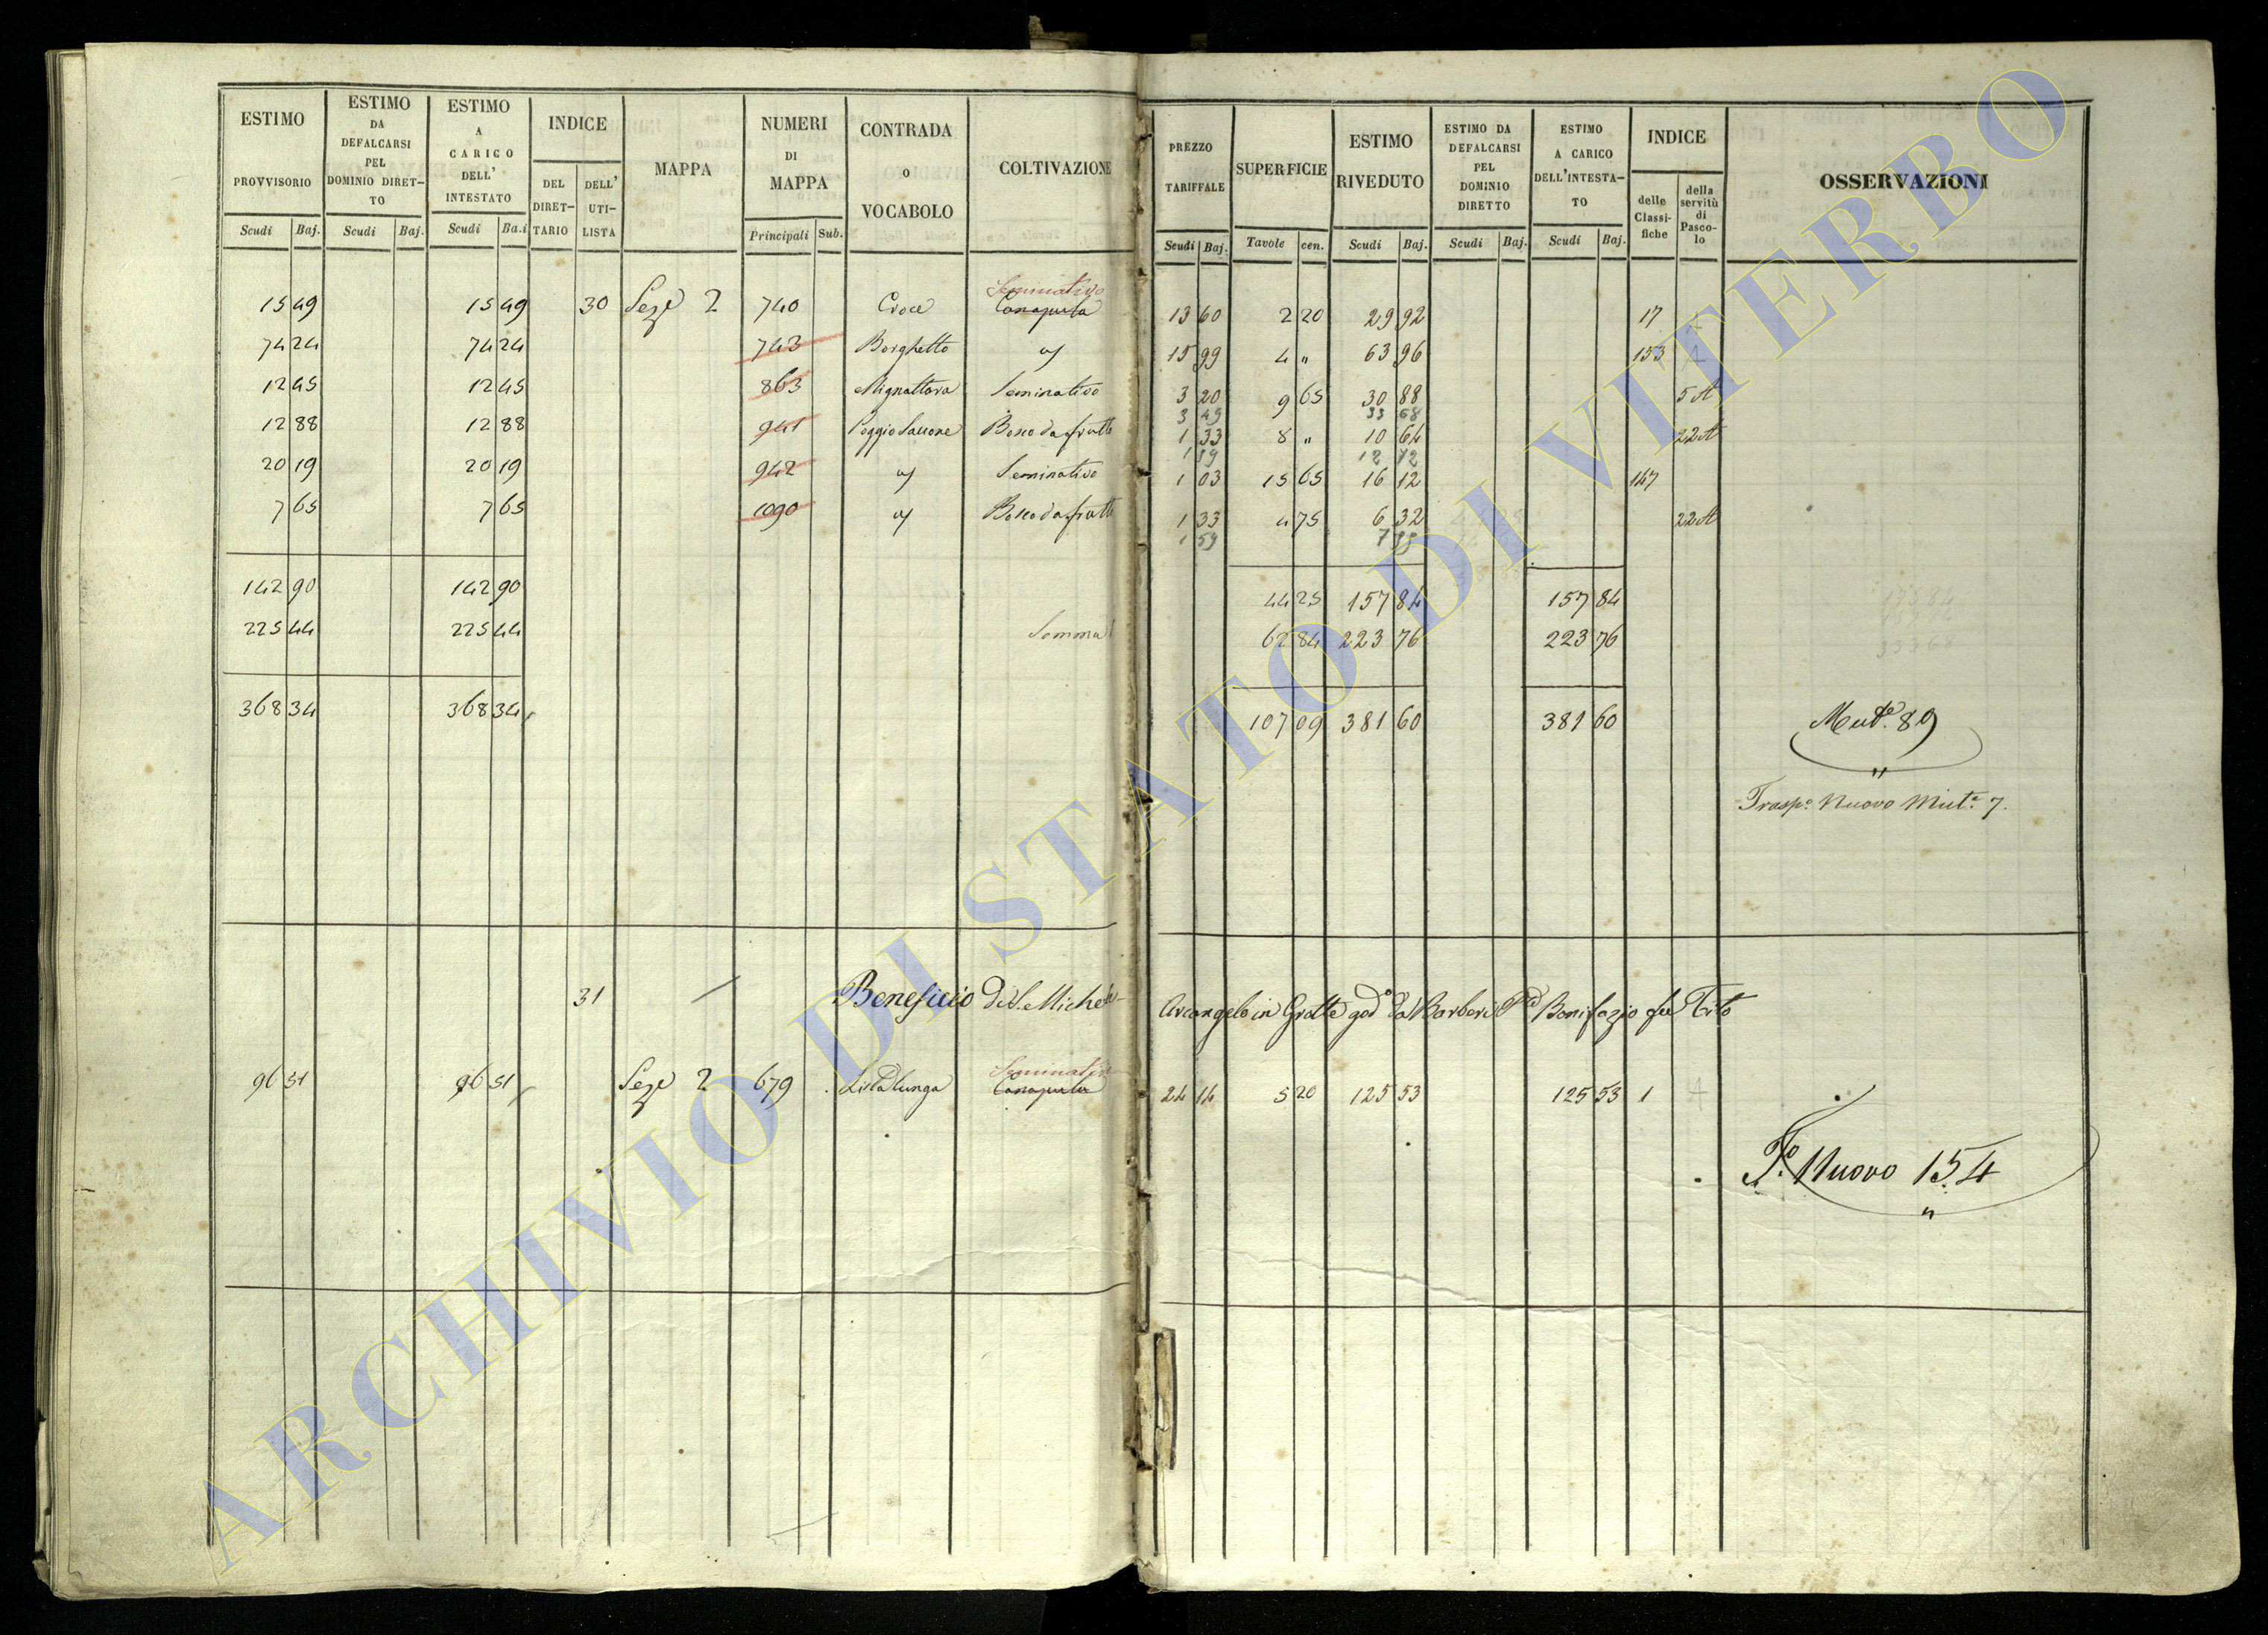 ESTIMO PROVVISORIO Scudi Baj.
ESTIMO DA DEFALCARSI PEL DOMINIO DIRETTO Scudi Baj.
ESTIMO A CARICO DELL' INTESTATO Scudi Ba.i
INDICE DEL DIRET-TARIO DELL' UTI-LISTA
MAPPA
NUMERI DI MAPPA Principali Sub.
CONTRADA O VOCABOLO
COLTIVAZIONE
PREZZO TARIFFALE Scudi Baj.
SUPERFICIE Tavole cen.
ESTIMO RIVEDUTO Scudi Baj.
ESTIMO DA DEFALCARSI PEL DOMINIO DIRETTO Scudi Baj.
ESTIMO A CARICO DELL'INTESTA-TO Scudi Baj.
INDICE delle Classi-fiche della servitù di Pasco-lo
OSSERVAZIONI
Seminativo
15 49 15 49 30 Seze 2 740 Croce Canapula 13 60 2 20 29 92 17
74 24 74 24 743 Borghetto 15 99 4 " 63 96 153
12 45 12 45 863 Mignattara Seminativo 3 20 9 65 30 88 5 A
3 49 33 68
12 88 12 88 941 Poggio Saccone Bosco da frutto 1 33 8 " 10 64 22 A
1 59 12 72
20 19 20 19 942 Seminativo 1 03 15 65 16 12 147
7 65 7 65 1090 Bosco da frutto 1 33 4 75 6 32 22 A
1 59
142 90 142 90 44 25 157 84 157 84
225 44 225 44 Somma 62 84 223 76 223 76
368 34 368 34 107 09 381 60 381 60
Mute. 89
"
Traspo. Nuovo Mute. 7.
31 Beneficio di S. Michele Arcangelo in Grotte godo da Barberi Bonifazio fu Tito
Seminativo
96 51 96 51 Seze 2 679 Lista lunga Canapula 24 14 5 20 125 53 125 53 1
To. Nuovo 154
"
ARCHIVIO DI STATO DI VITERBO